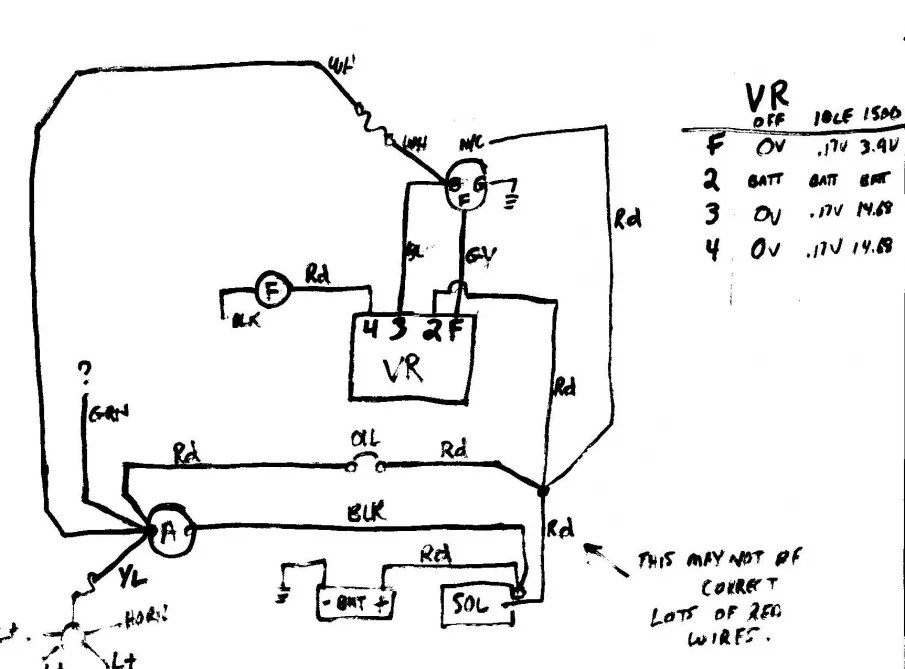 WH
VR
OFF IDLE 1500
F OV .17V 3.9V
2 BATT BATT BATT
3 OV .17V 14.68
4 OV .17V 14.68
WH N/C
B G
F
Rd
BL GY
Rd
F
BLK
4 3 2 F
VR
Rd
?
GRN
OIL
Rd Rd
BLK
A
Rd
Rd
THIS MAY NOT BE
CORRECT
LOTS OF RED
WIRES.
YL
- BAT +
SOL
HORN
L+